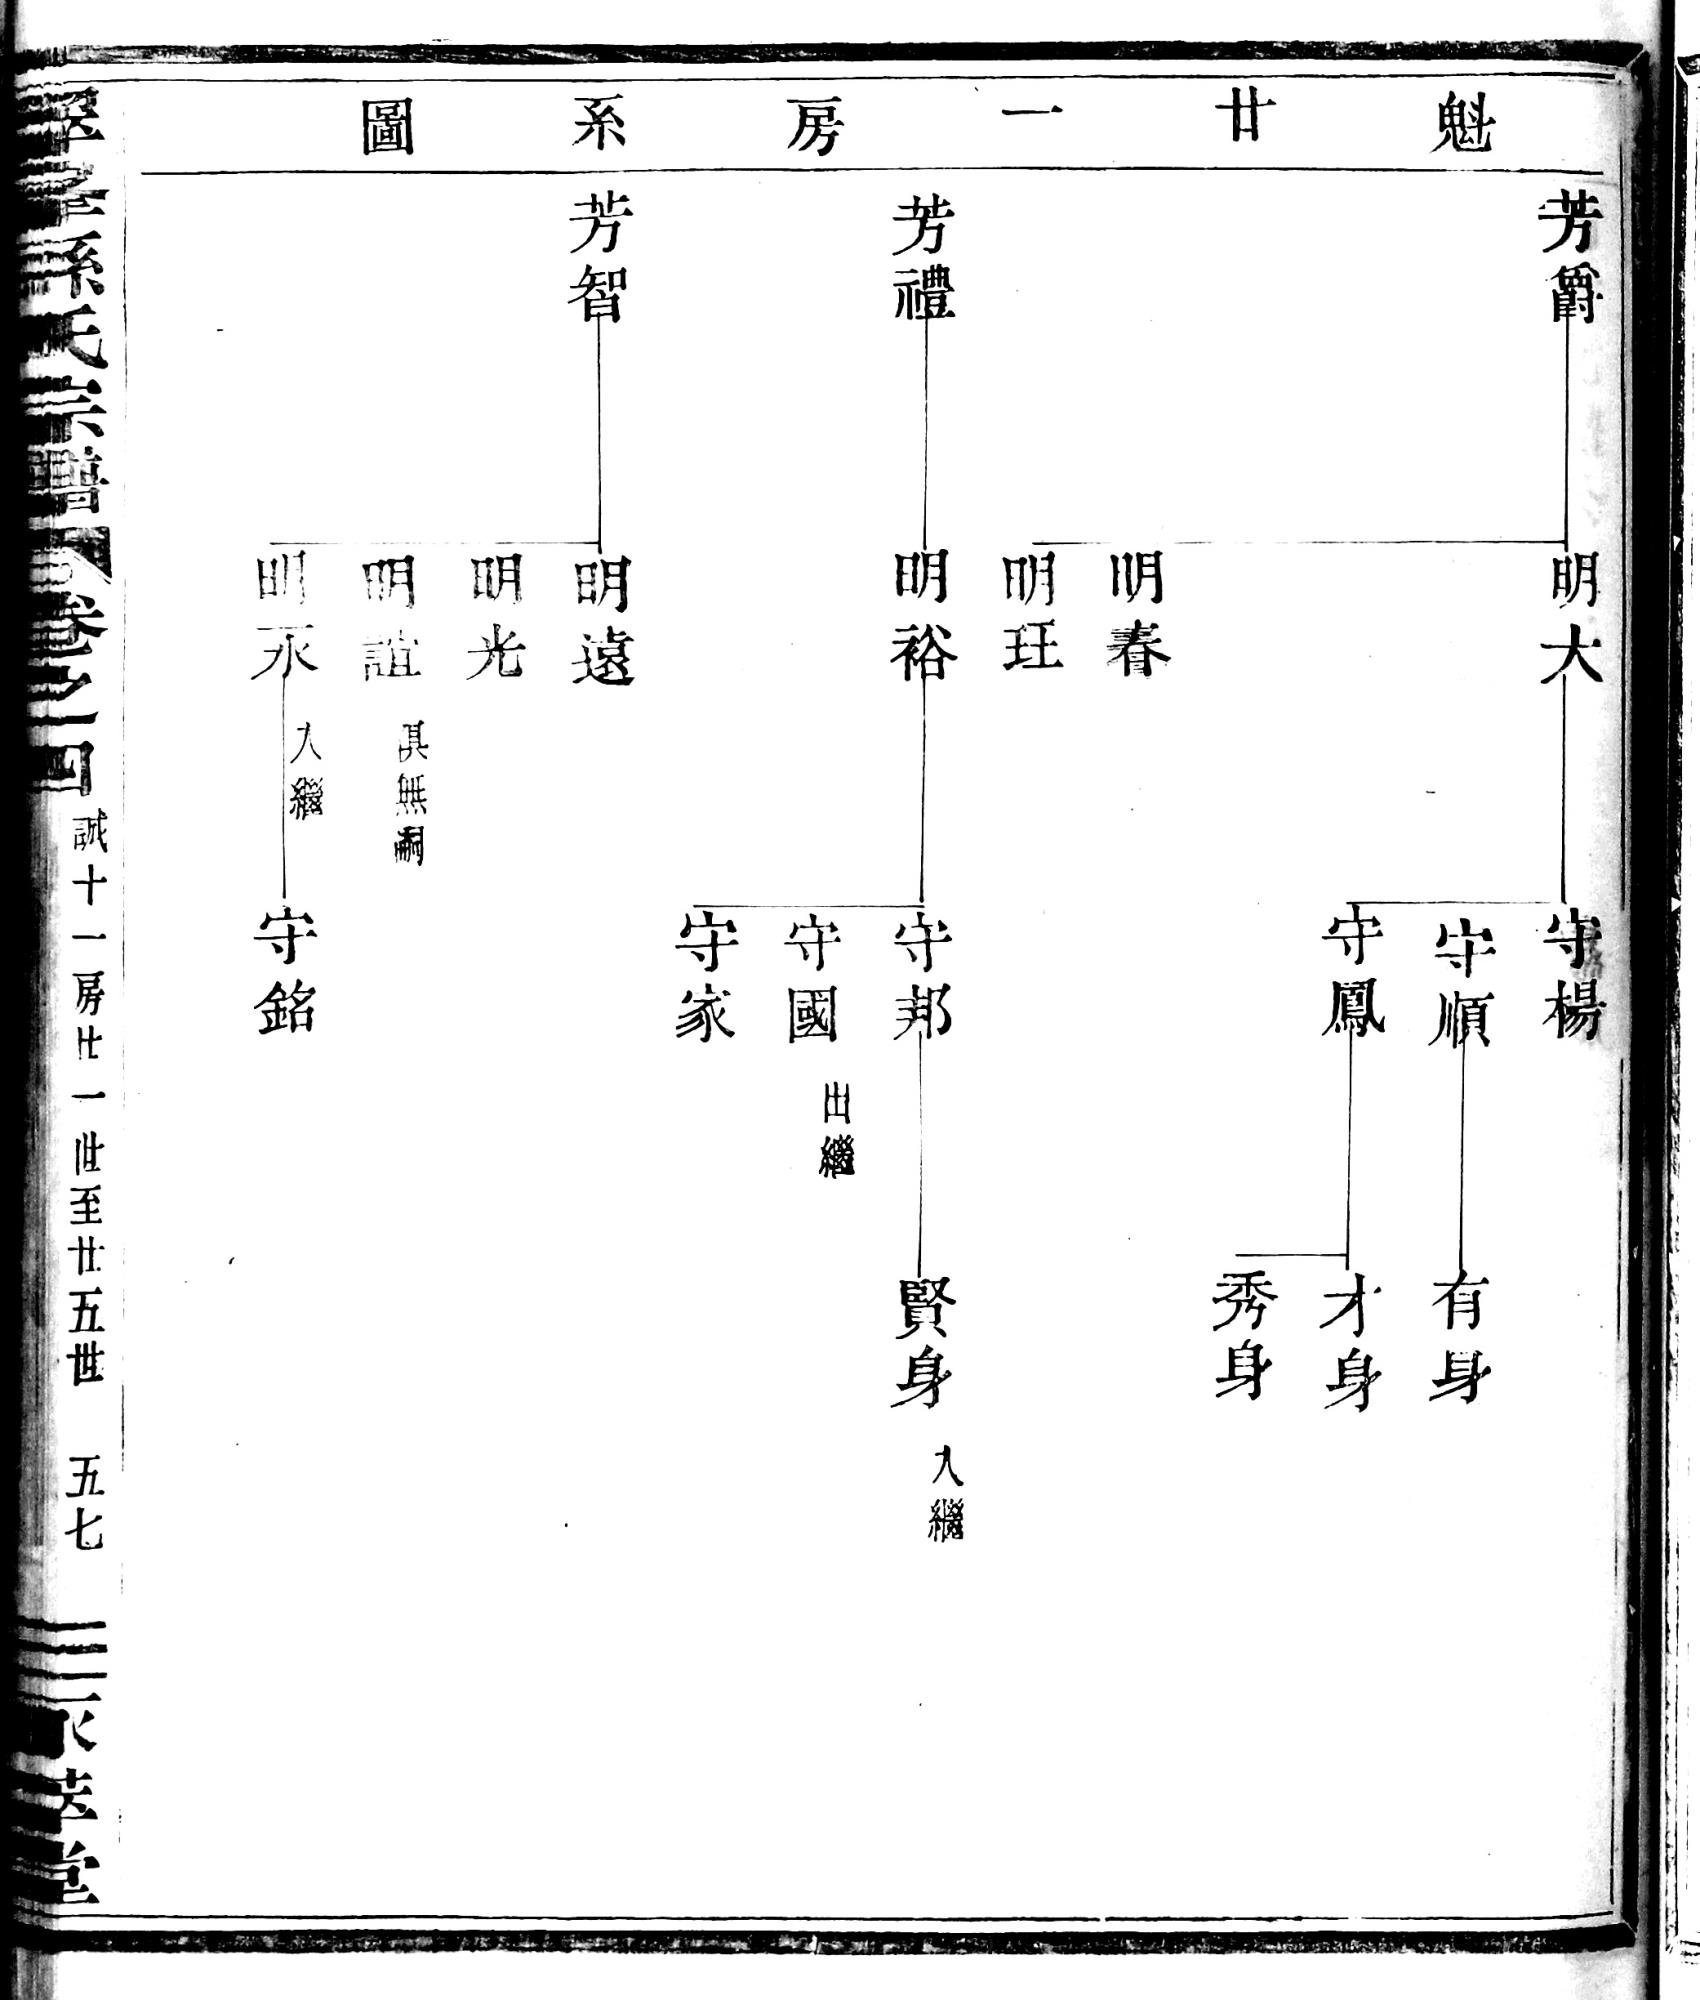 魁廿一房系圖
芳爵
明大
守楊
守順
有身
守鳳
才身
秀身
明春
明玨
芳禮
明裕
守邦
賢身
入繼
守國
出繼
守家
芳智
明遠
明光
明誼
俱無嗣
明永
入繼
守銘
孫氏宗譜
卷之四
誠十一房廿一世至廿五世
五七
堂